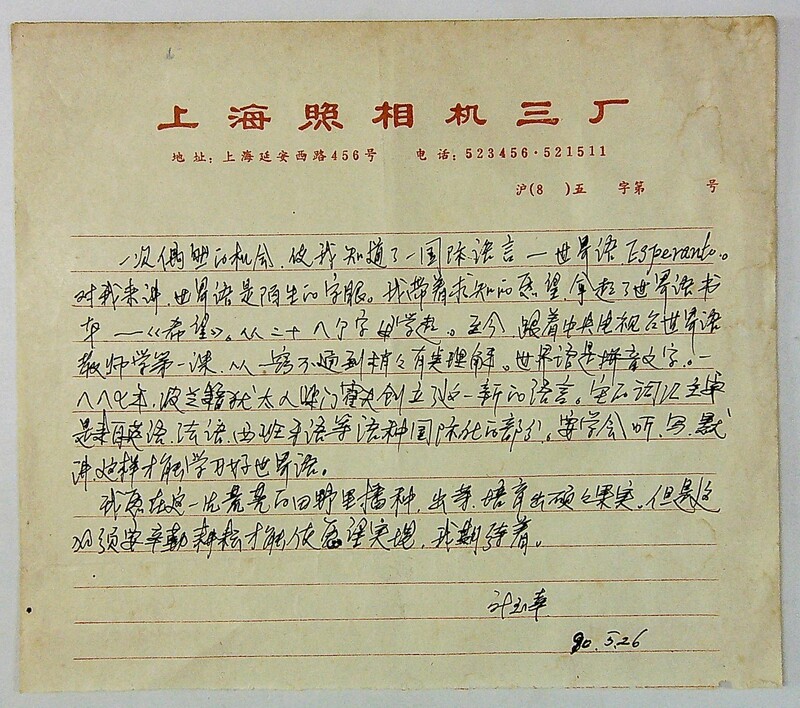 上海照相机三厂
地址：上海延安西路456号 电话：523456·521511
沪(8 )五 字第 号
一次偶然的机会，使我知道了一国际语言—世界语Esperanto。
对我来讲，世界语是陌生的字眼。我带着求知的愿望，拿起了世界语书
本—《希望》。从二十八个字母学起。至今，跟着中央电视台世界语
教师学第一课，从一窍不通到稍々有点理解。世界语是拼音文字。一
八八七年，波兰籍犹太人柴门霍夫创立了这一新的语言。它的词汇主要
是来自英语、法语、西班牙语等语种国际化的部分。要学会听、写、默
讲，这样才能学习好世界语。
我愿在这一片荒芜的田野里播种，出芽，培育出硕々果实，但是这
必须要辛勤耕耘才能使愿望实现，我期待着。
90.5.26